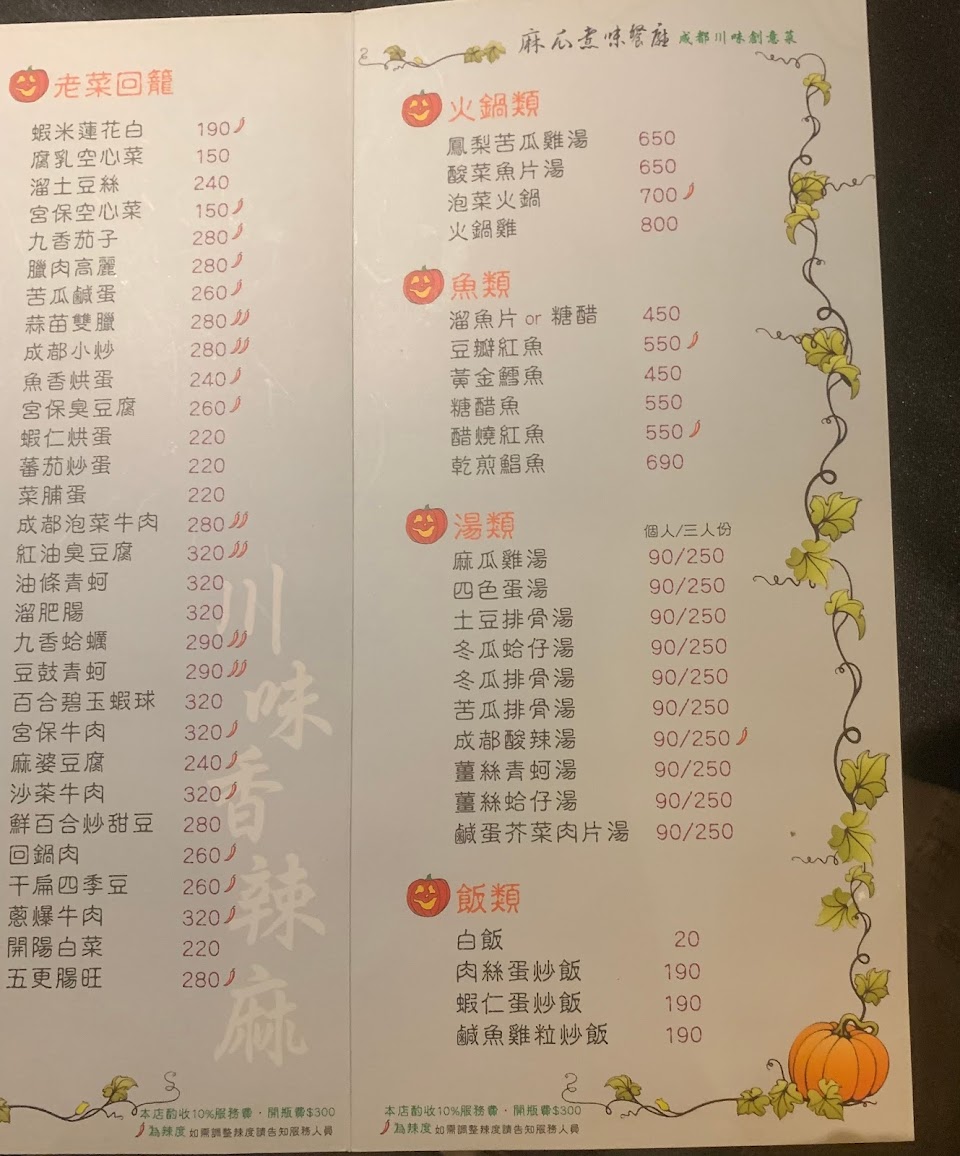 老菜回籠
蝦米蓮花白 190
腐乳空心菜 150
溜土豆絲 240
宮保空心菜 150
九香茄子 280
臘肉高麗 280
苦瓜鹹蛋 260
蒜苗雙臘 280
成都小炒 280
魚香烘蛋 240
宮保臭豆腐 260
蝦仁烘蛋 220
蕃茄炒蛋 220
菜脯蛋 220
成都泡菜牛肉 280
紅油臭豆腐 320
油條青蚵 320
溜肥腸 320
九香蛤蠣 290
豆鼓青蚵 290
百合碧玉蝦球 320
宮保牛肉 320
麻婆豆腐 240
沙茶牛肉 320
鮮百合炒甜豆 280
回鍋肉 260
干扁四季豆 260
蔥爆牛肉 320
開陽白菜 220
五更腸旺 280
川味香辣麻
本店酌收10%服務費·開瓶費$300
為辣度 如需調整辣度請告知服務人員
麻瓜煮味餐廳 成都川味創意菜
火鍋類
鳳梨苦瓜雞湯 650
酸菜魚片湯 650
泡菜火鍋 700
火鍋雞 800
魚類
溜魚片 or 糖醋 450
豆瓣紅魚 550
黃金鱈魚 450
糖醋魚 550
醋燒紅魚 550
乾煎鯧魚 690
湯類 個人/三人份
麻瓜雞湯 90/250
四色蛋湯 90/250
土豆排骨湯 90/250
冬瓜蛤仔湯 90/250
冬瓜排骨湯 90/250
苦瓜排骨湯 90/250
成都酸辣湯 90/250
薑絲青蚵湯 90/250
薑絲蛤仔湯 90/250
鹹蛋芥菜肉片湯 90/250
飯類
白飯 20
肉絲蛋炒飯 190
蝦仁蛋炒飯 190
鹹魚雞粒炒飯 190
本店酌收10%服務費·開瓶費$300
為辣度 如需調整辣度請告知服務人員